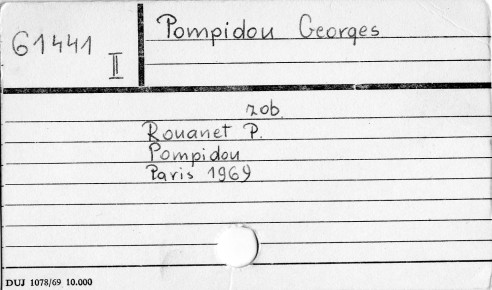 61441
II
Pompidou Georges
zob.
Rouanet P.
Pompidou
Paris 1969
DUJ 1078/69 10.000